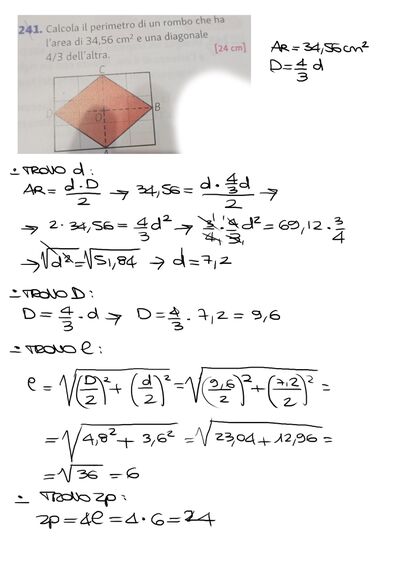 241. Calcola il perimetro di un rombo che ha
l'area di 34,56 cm² e una diagonale
4/3 dell'altra.
[24 cm]
C
D
O
B
A
AR = 34,56 cm²
D = 4/3 d
∸ TROVO d:
AR = d·D/2 → 34,56 = d·4/3d/2 →
→ 2·34,56 = 4/3 d² → 3/4·4/3 d² = 69,12·3/4
→ √d² = √51,84 → d = 7,2
∸ TROVO D:
D = 4/3·d → D = 4/3·7,2 = 9,6
∸ TROVO l:
l = √(D/2)² + (d/2)² = √(9,6/2)² + (7,2/2)² =
= √4,8² + 3,6² = √23,04 + 12,96 =
= √36 = 6
∸ TROVO 2p:
2p = 4l = 4·6 = 24